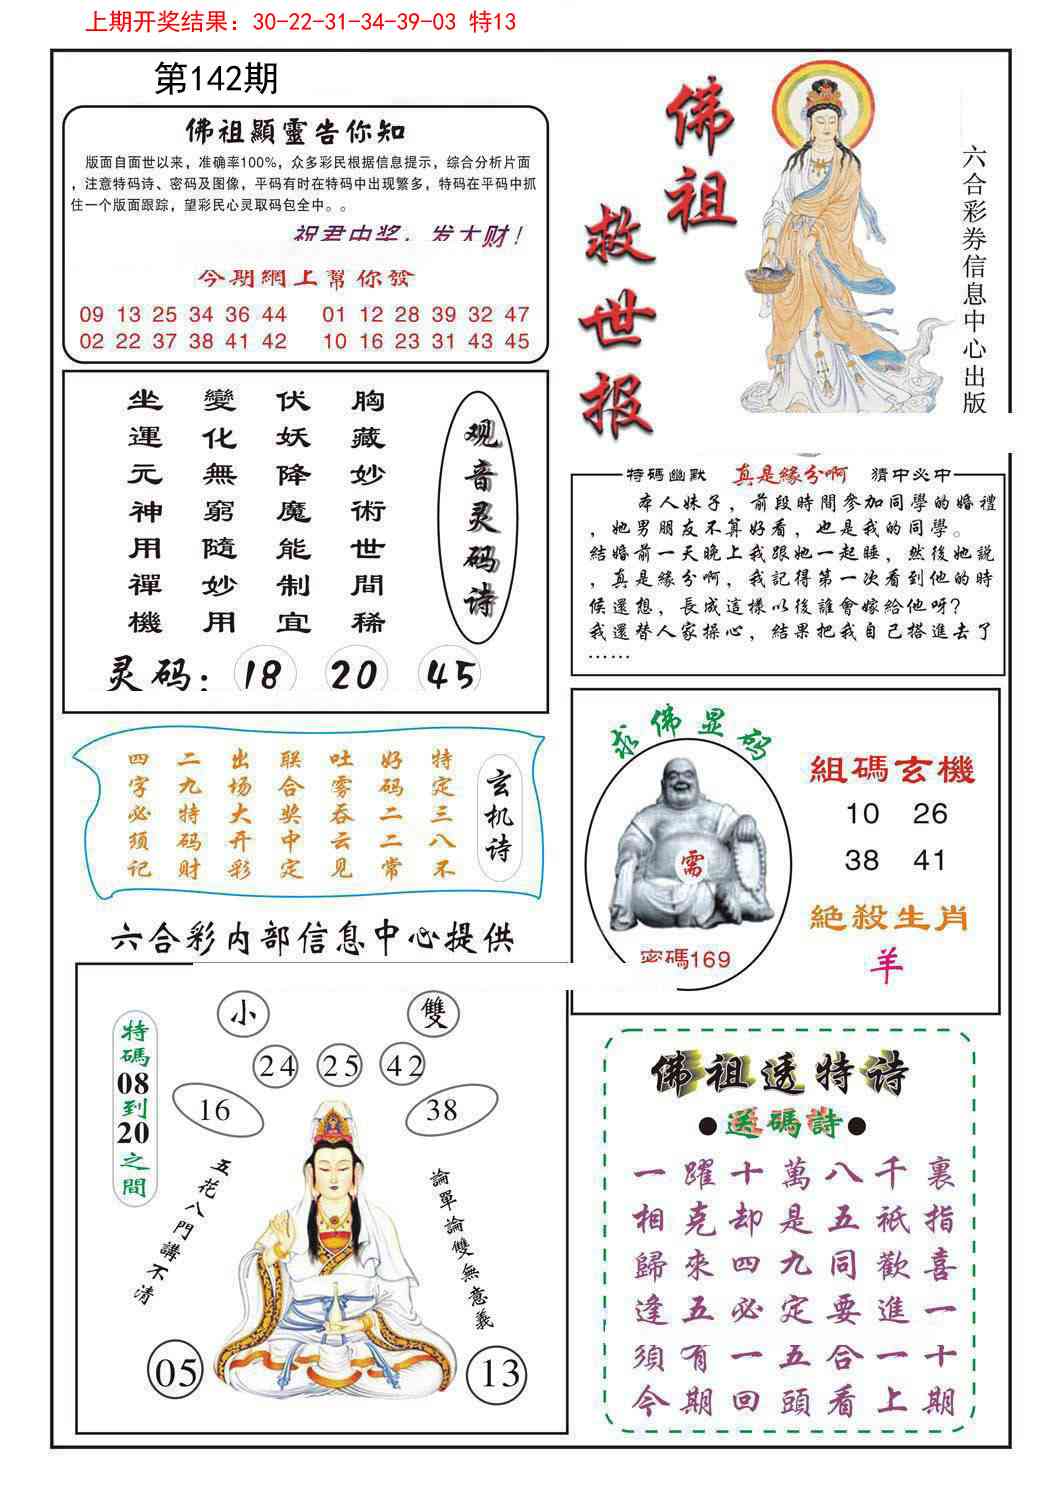 上期开奖结果：30-22-31-34-39-03 特13
第142期
佛祖顯靈告你知
版面自面世以来，准确率100%，众多彩民根据信息提示，综合分析片面
，注意特码诗、密码及图像，平码有时在特码中出现繁多，特码在平码中抓
住一个版面跟踪，望彩民心灵取码包全中。。
祝君中奖，发大财！
今期網上幫你發
09 13 25 34 36 44 01 12 28 39 32 47
02 22 37 38 41 42 10 16 23 31 43 45
佛祖
救世报
六合彩券信息中心出版
观音灵码诗
胸藏妙術世間稀
伏妖降魔能制宜
變化無窮隨妙用
坐運元神用禪機
灵码：18 20 45
特碼幽默 真是緣分啊 猜中必中
本人妹子，前段時間參加同學的婚禮
，她男朋友不算好看，也是我的同學。
結婚前一天晚上我跟她一起睡，然後她説
，真是緣分啊，我記得第一次看到他的時
候還想，長成這樣以後誰會嫁給他呀？
我還替人家操心，結果把我自己搭進去了
……
玄机诗
特定三八不
好码二二常
吐雾吞云见
联合奖中定
出场大开彩
二九特码财
四字必须记
求佛显码
需
密碼169
組碼玄機
10 26
38 41
絶殺生肖
羊
六合彩内部信息中心提供
小 雙
24 25 42
16 38
特碼08到20之間
五花八門講不清
論單論雙無意義
05 13
佛祖透特诗
●送碼詩●
一躍十萬八千裏
相克却是五祇指
歸來四九同歡喜
逢五必定要進一
須有一五合一十
今期回頭看上期